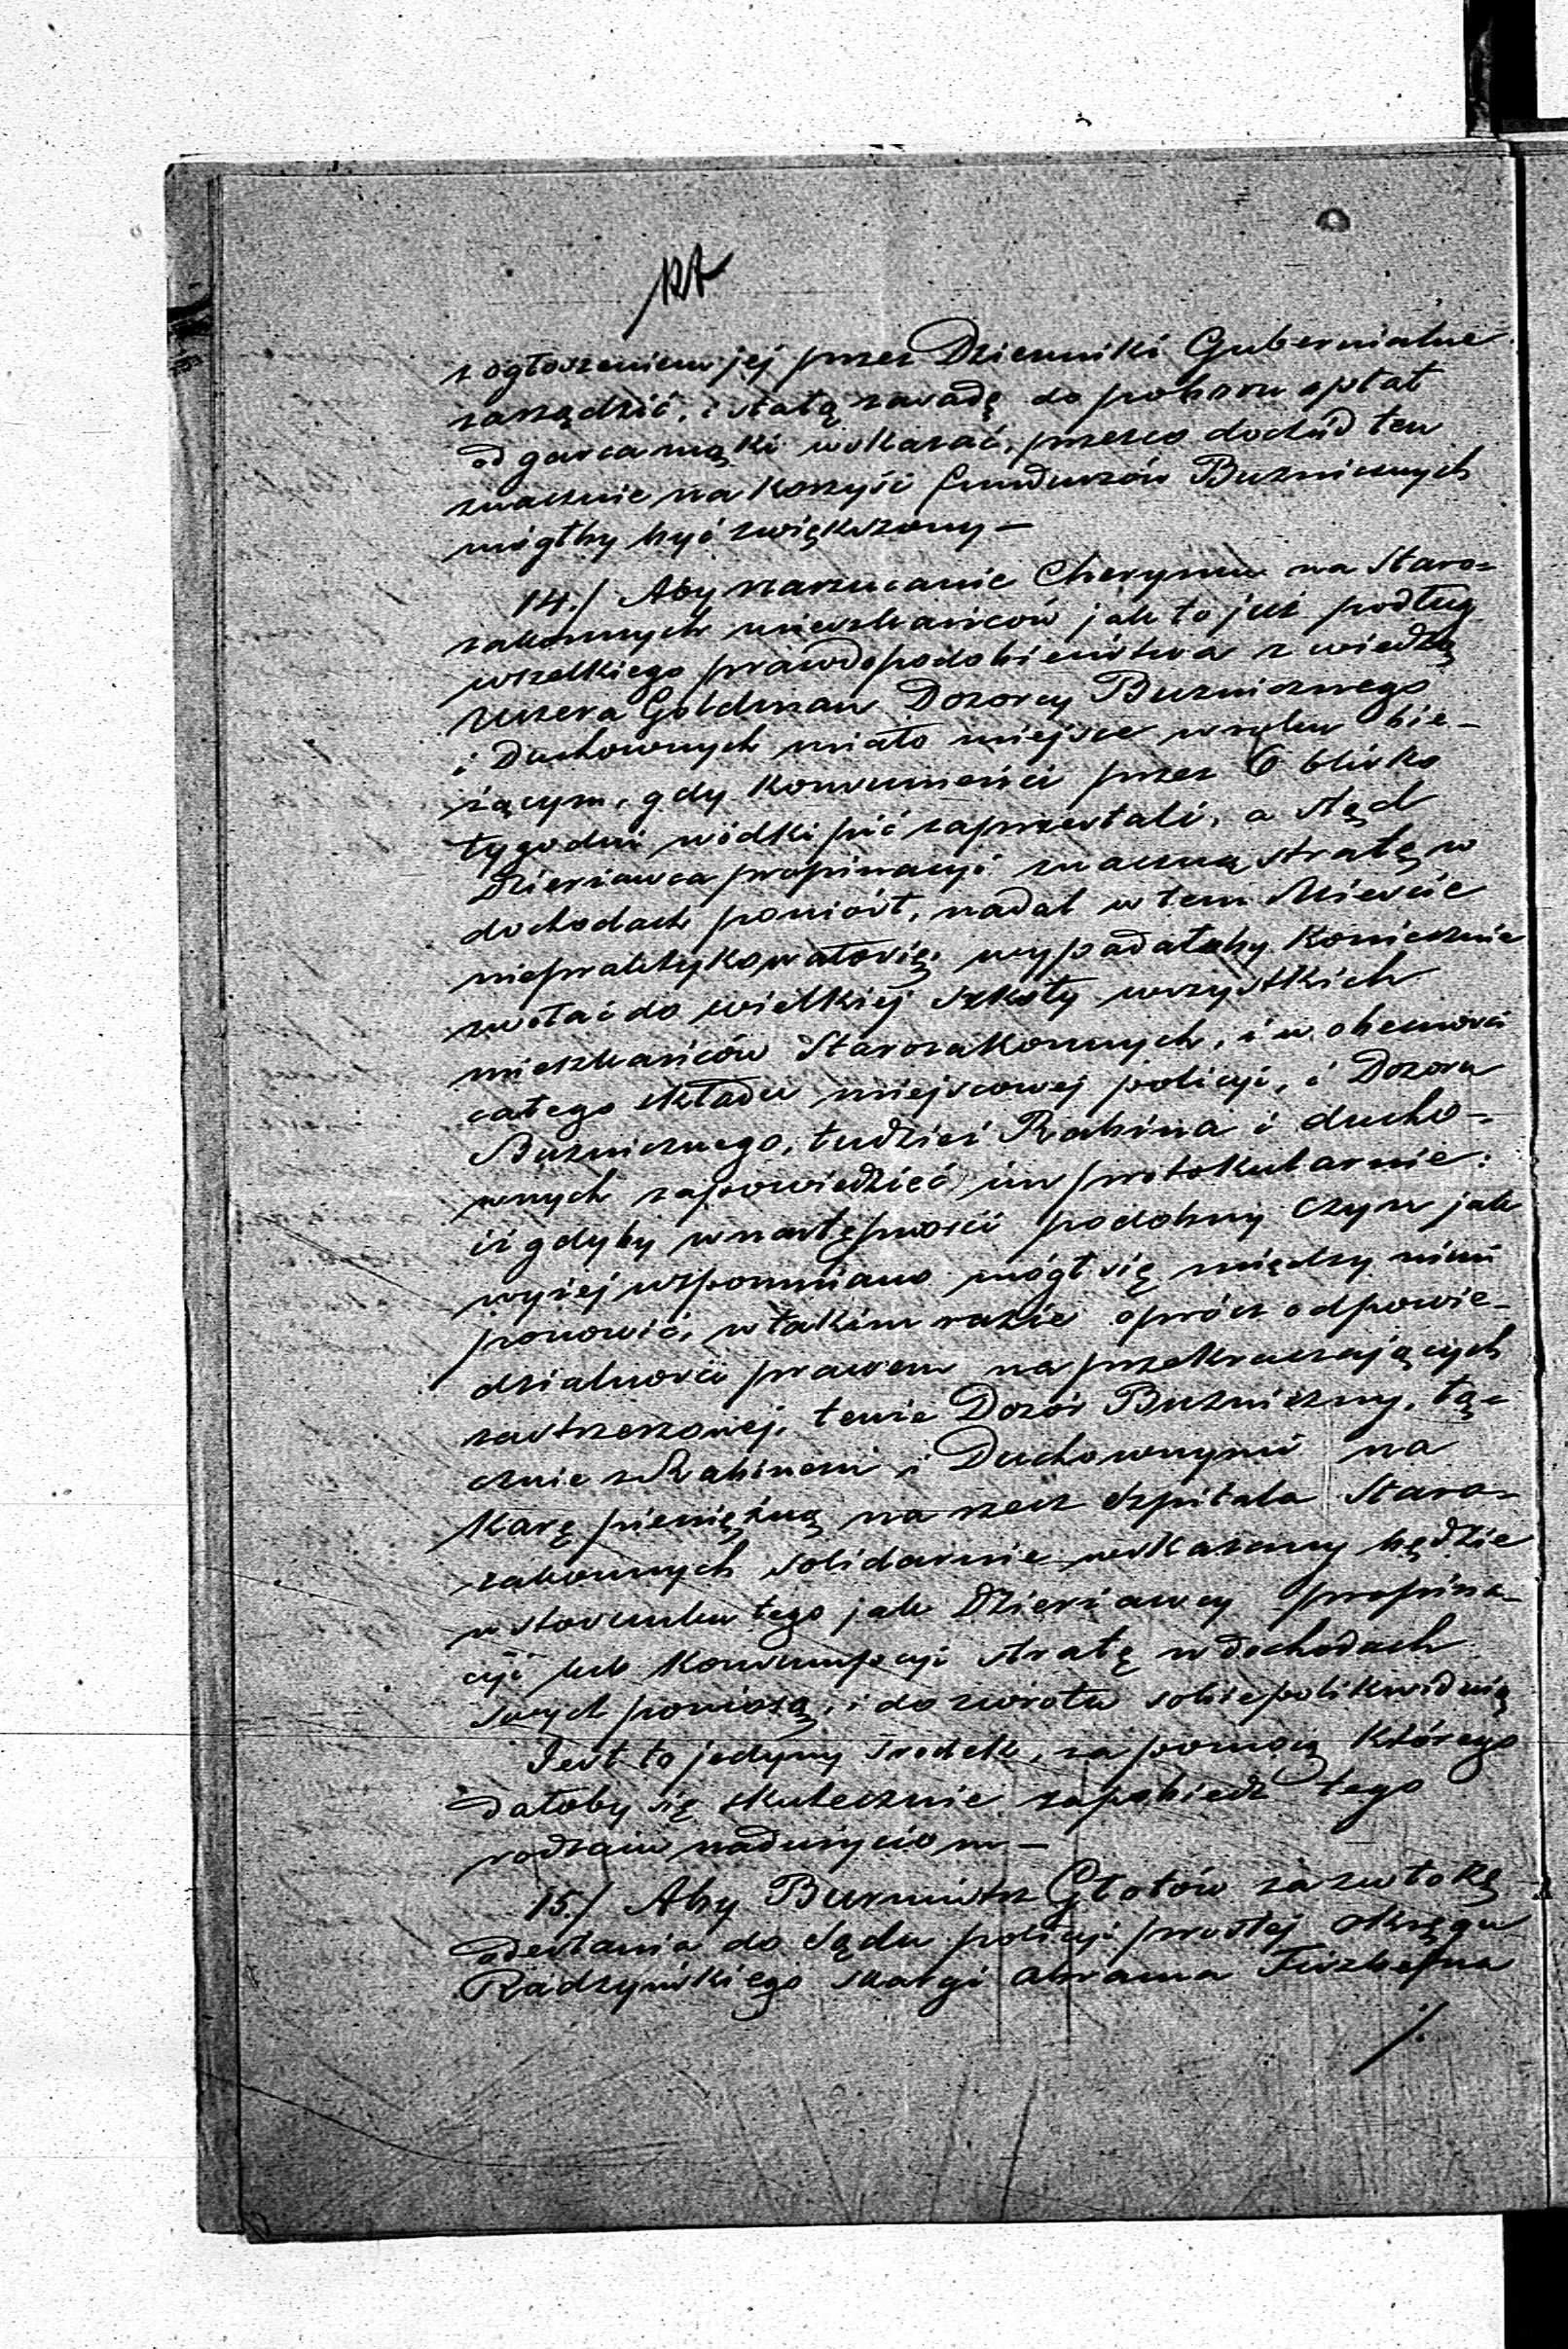 z ogłoszeniem jej przez Dzienniki Gubernialne
zarządzić, i stałą zasadę do poboru opłat
od garca mąki wskazać, przezco dochód ten
znacznie na korzyść funduszów Buzniczych
mógłby być zwiększony —
14./ Aby narzucanie Cherymu na Staro=
zakonnych mieszkańców jak to już podług
wszelkiego prawdopodobieństwa z wiedzą
Uszera Goldman Dozorcy Buznicznego
i Duchownych miało miejsce w roku bie-
żącym, gdy konsumenci przez 6 blisko
tygodni wódki pić zaprzestali, a stąd
Dzierżawca propinacyi znaczną stratę w
dochodach poniósł, nadal w tem Mieście
niepraktykowało się, wypadałoby koniecznie
zwołać do wielkiej szkoły wszystkich
mieszkańców Starozakonnych, i w obecności
całego składu miejscowej policyi, i Dozoru
Buznicznego, tudzież Rabina i ducho-
wnych zapowiedzieć im protokularnie:
iż gdyby w następności podobny czyn jak
wyżej wspomniano mógł się między nimi
ponowić, w takim razie oprócz odpowie-
dzialności prawem na przekraczających
zastrzeżonej, tenże Dozór Buzniczny, łą=
cznie z Rabinem i Duchownymi na
karę pieniężną na rzecz szpitala Staro=
zakonnych solidarnie wskazany będzie
w stosunku tego jak Dzierżawcy propina-
cyi lub konsumpcyi stratę w dochodach
swych poniosą, i do zwrotu sobie polikwidują
Jest to jedyny środek, za pomocą którego
dałoby się skutecznie zapobiedz tego
rodzaiu nadużyciom —
15./ Aby Burmistrz Głotów za zwłokę
odesłania do Sądu policyi prostej Okręgu
Radzyńskiego skargi Abrama
./.